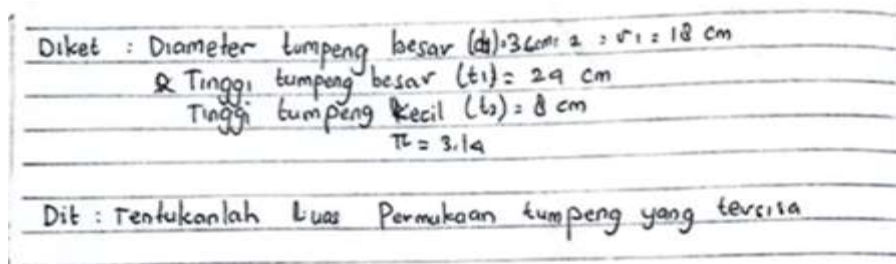 Diket : Diameter tumpeng besar (d1)=36cm: 2 = r1 = 18 cm
& Tinggi tumpeng besar (t1) = 24 cm
Tinggi tumpeng kecil (t2) = 8 cm
π = 3.14
Dit : Tentukanlah Luas Permukaan tumpeng yang tersisa